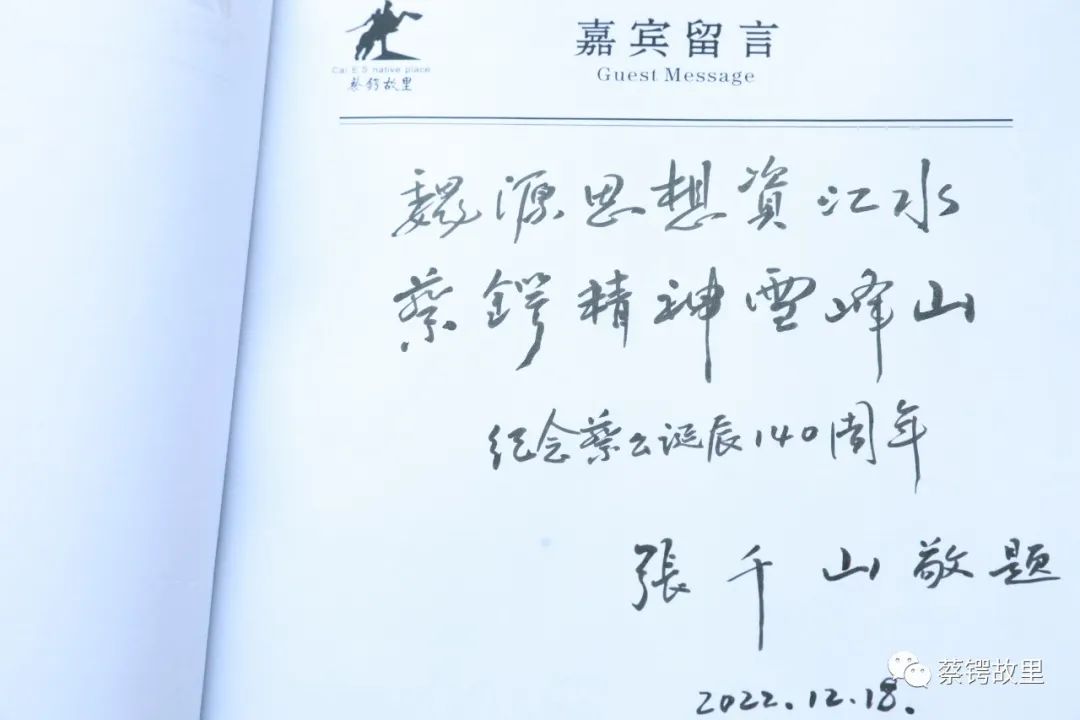 Cai E S native place
蔡锷故里
嘉宾留言
Guest Message
魏源思想資江水
蔡鍔精神雪峰山
纪念蔡公诞辰140周年
張千山敬题
2022.12.18.
蔡锷故里